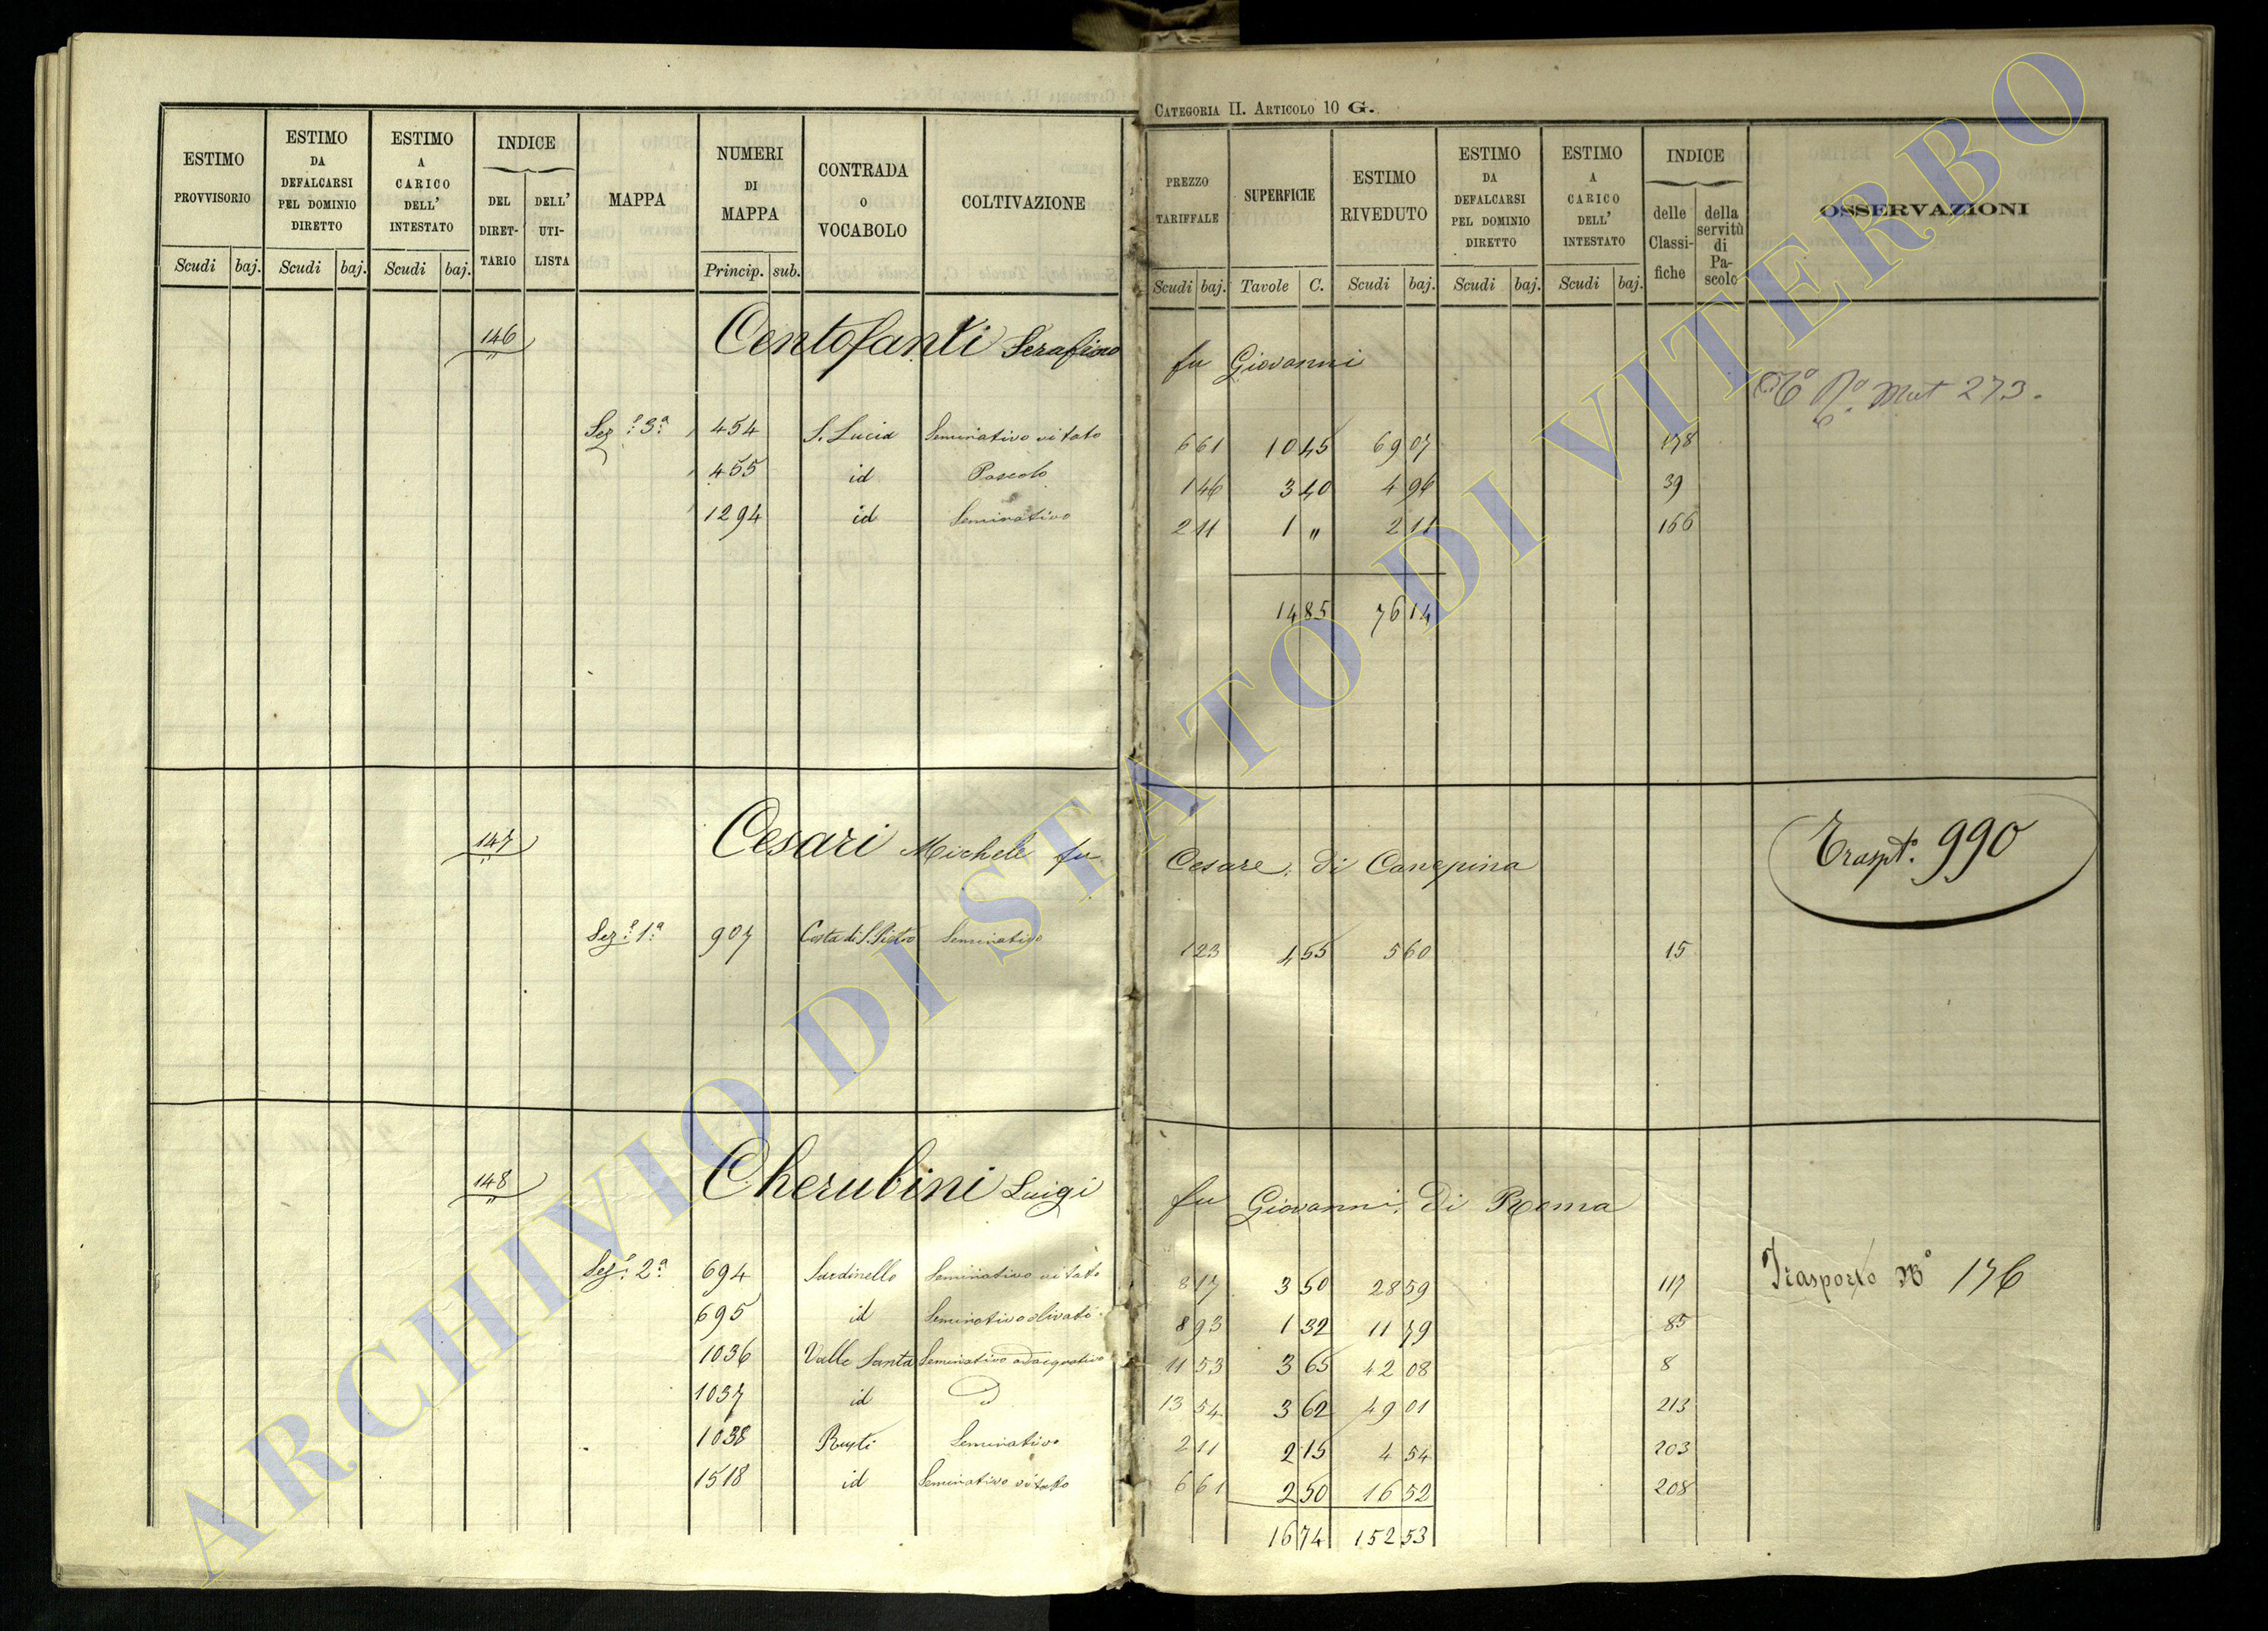 CATEGORIA II. ARTICOLO 10 G.
ESTIMO PROVVISORIO Scudi baj.
ESTIMO DA DEFALCARSI PEL DOMINIO DIRETTO Scudi baj.
ESTIMO A CARICO DELL' INTESTATO Scudi baj.
INDICE DEL DIRETTARIO DELL' UTILISTA
MAPPA
NUMERI DI MAPPA Princip. sub.
CONTRADA O VOCABOLO
COLTIVAZIONE
PREZZO TARIFFALE Scudi baj.
SUPERFICIE Tavole C.
ESTIMO RIVEDUTO Scudi baj.
ESTIMO DA DEFALCARSI PEL DOMINIO DIRETTO Scudi baj.
ESTIMO A CARICO DELL' INTESTATO Scudi baj.
INDICE delle Classifiche della servitù di Pascolo
OSSERVAZIONI
146 Centofanti Serafino fu Giovanni
Mut 273.
Sez.e 3.a 454 S. Lucia Seminativo vitato 6 61 10 45 69 07 178
455 id Pascolo 1 46 3 40 4 96 39
1294 id Seminativo 2 11 1 " 2 11 166
14 85 76 14
147 Cesari Michele fu Cesare, di Canepina
Traspt.o 990
Sez.e 1.a 907 Costa di S. Pietro Seminativo 1 23 4 55 5 60 15
148 Cherubini Luigi fu Giovanni, di Roma
Sez.e 2.a 694 Sardinello Seminativo vitato 8 17 3 50 28 59 117 Trasporto No 176
695 id Seminativo olivato 8 93 1 32 11 79 85
1036 Valle Santa Seminativo adacquativo 11 53 3 65 42 08 8
1037 id 13 54 3 62 49 01 213
1038 Seminativo 2 11 2 15 4 54 203
1518 id Seminativo vitato 6 61 2 50 16 52 208
16 74 152 53
ARCHIVIO DI STATO DI VITERBO